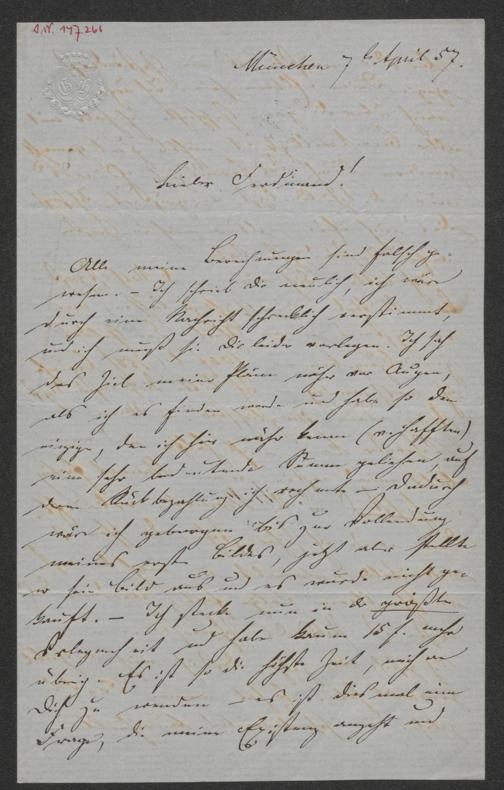 I.N. 147.266
München 7 t. April 57.
Lieber Ferdinand!
Alle meine Berechnungen sind falsch ge-
wesen. – Ich schrieb Dir neulich ich wäre
durch eine Nachricht schrecklich verstimmt,
und ich muß sie Dir leider vorlegen. Ich sah
das Ziel meiner Pläne näher vor Augen,
als ich es finden werde und habe so dem
einzigen, den ich hier näher kenne
eine sehr bedeutende Summe geliehen, auf
deren Rückbezahlung ich rechnete – Dadurch
wäre ich geborgen bis zur Vollendung
meines ersten Bildes, jetzt aber stellte
er sein Bild aus und es wurde nicht ge-
kauft. – Ich stecke nun in der größten
Verlegenheit und habe kaum 15 f. mehr
übrig. Es ist so die höchste Zeit, mich an
Dich zu wenden – es ist diesmal eine
Frage, die meine Existenz angeht und